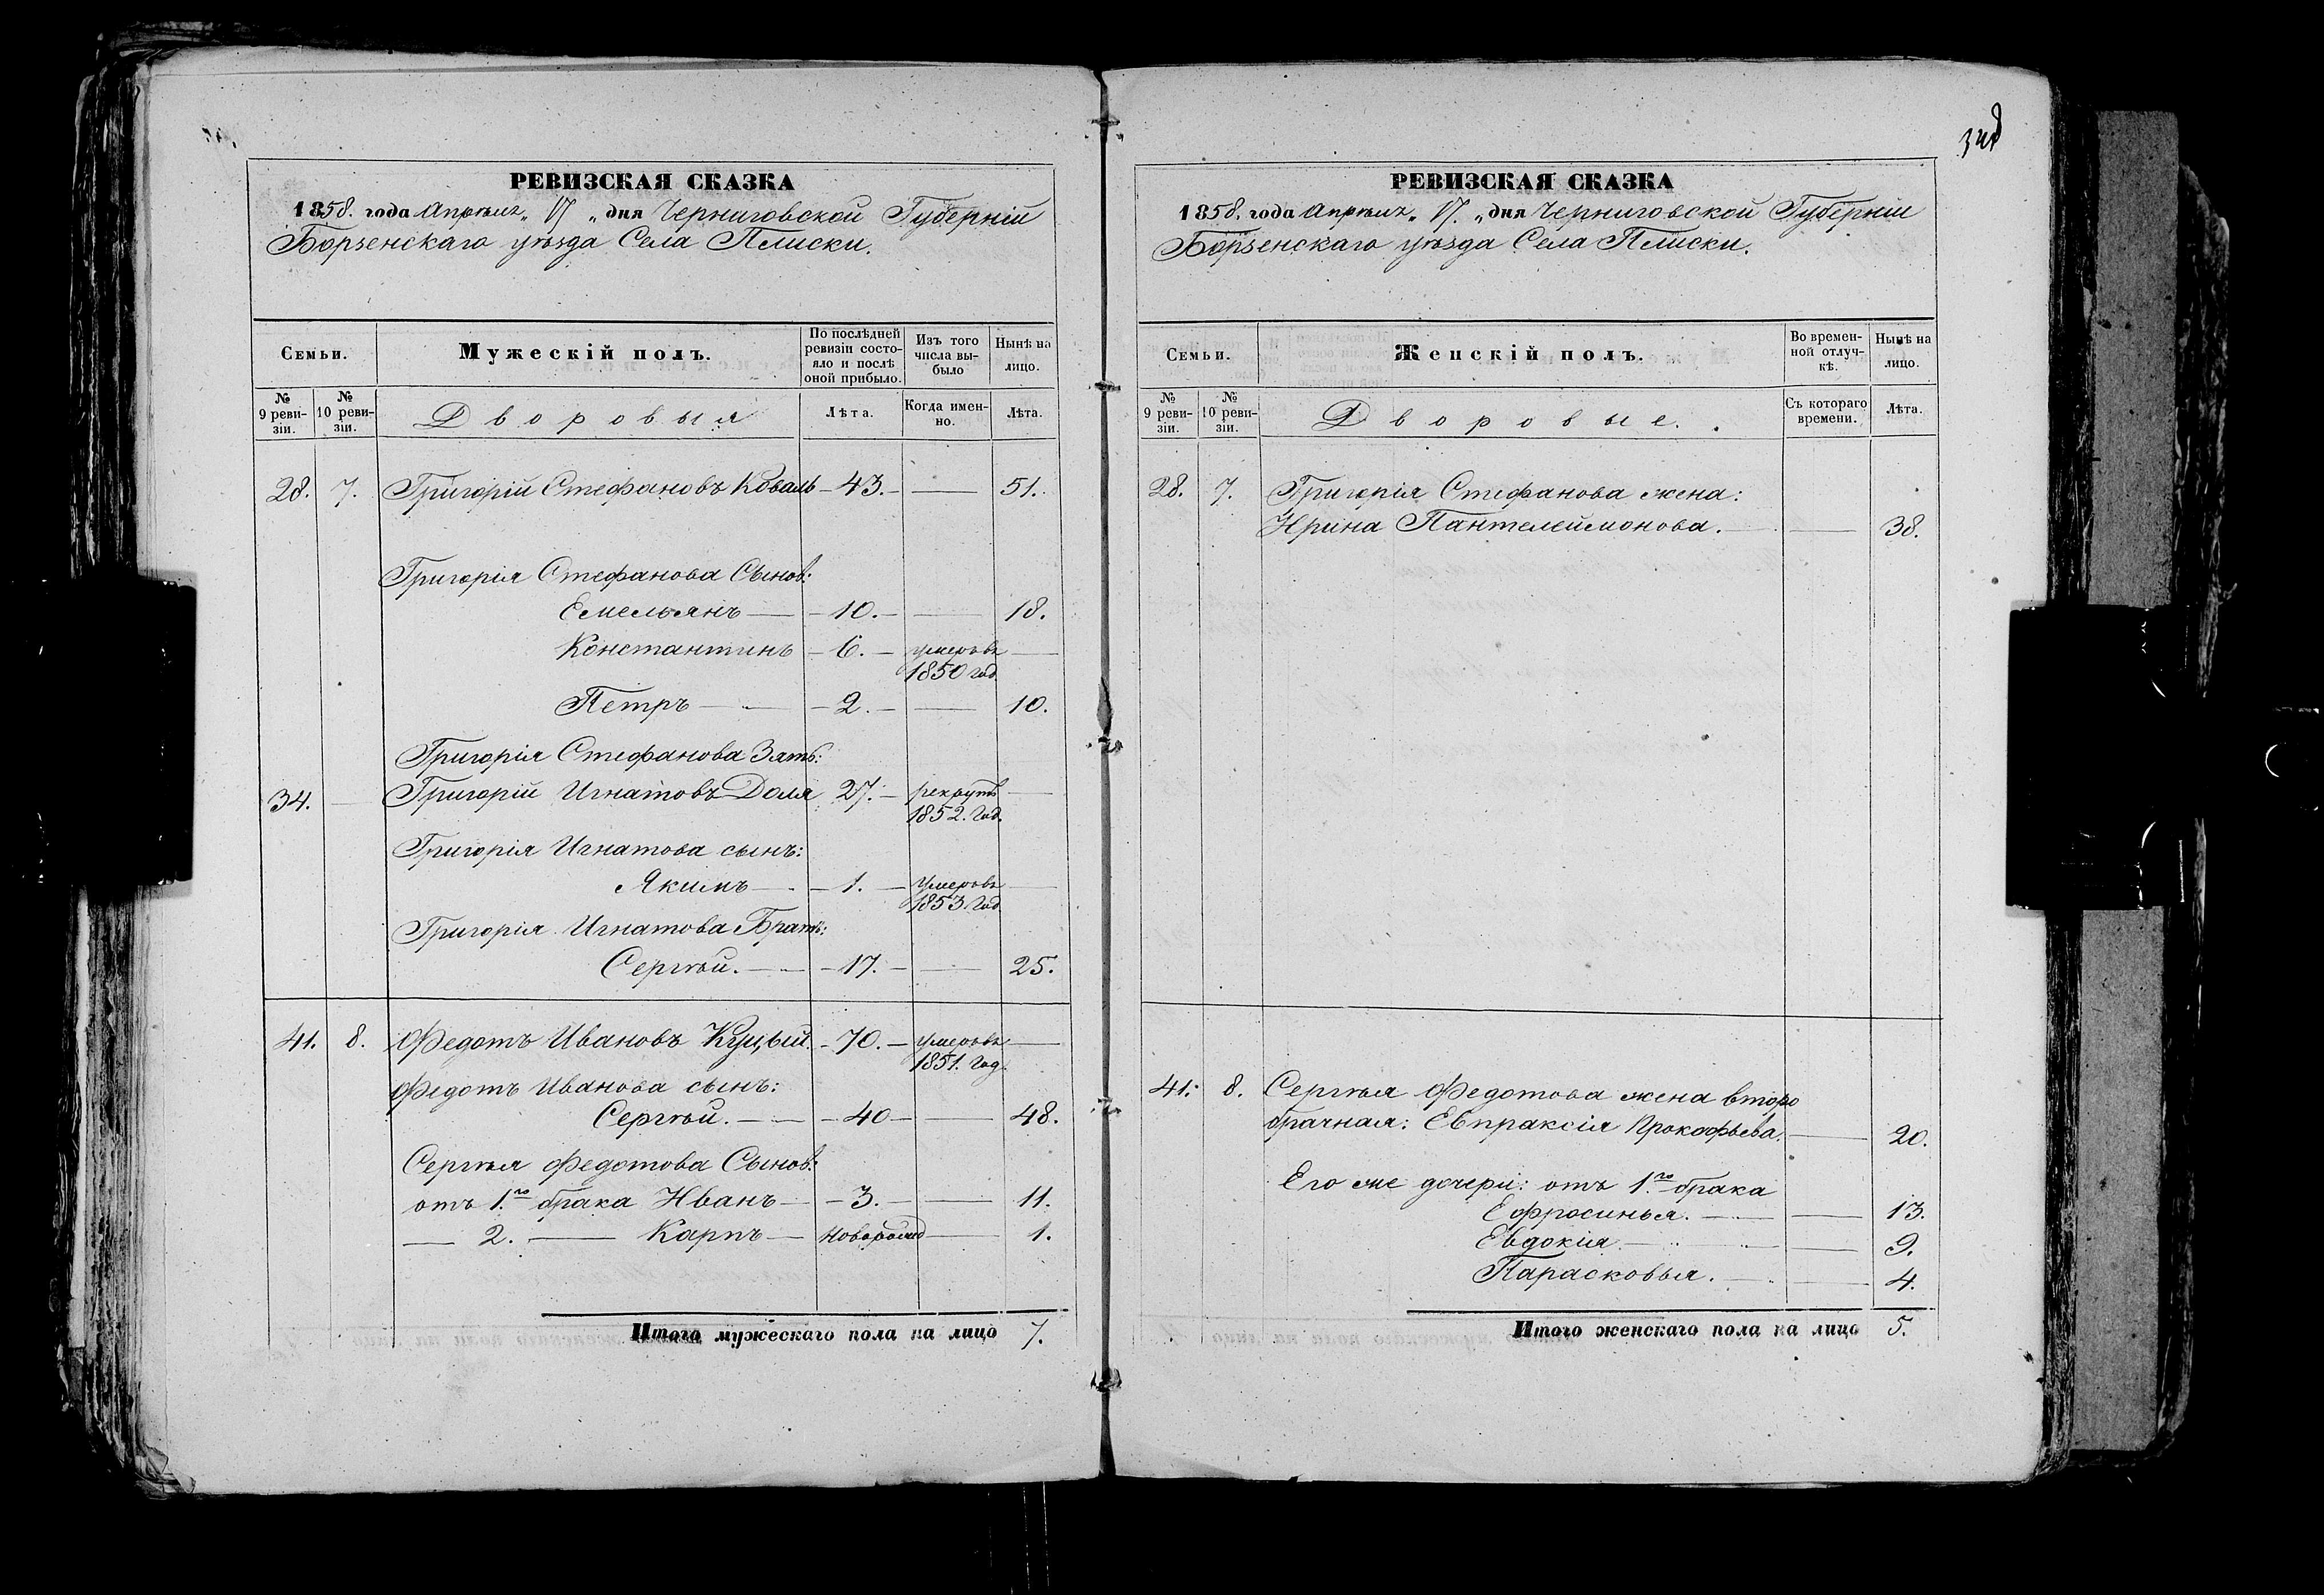 РЕВИЗСКАЯ СКАЗКА
1858. года Апрѣля „ 17 „ дня Черниговской Губерніи
Борзенскаго уѣзда Села Плиски.
Семьи.
Мужескій полъ.
По послѣдней ревизіи состояло и послѣ оной прибыло.
Изъ того числа выбыло
Нынѣ на лицо.
№ 9 ревизіи.
№ 10 ревизіи.
Дворовыя
Лѣта.
Когда именно.
Лѣта.
28. 7. Григорій Стефановъ Коваль — 43. — — 51.
Григорія Стефанова Сынов:
Емельянъ — — 10. — — 18.
Константинъ — 6. — умеръ въ —
1850 год
Петръ — — — 2. — — 10.
Григорія Стефанова Зять:
34. — Григорій Игнатовъ Доля 27. — рекрутъ —
1852. Год.
Григорія Игнатова сынъ:
Якимъ — — 1. — Умеръ въ —
1853. Год
Григорія Игнатова Братъ:
Сергѣй. — — — 17. — — 25.
41. 8. Федотъ Ивановъ Куцый. — 70. — умеръ въ —
1851. Год.
Федотъ Иванова сынъ:
Сергѣй. — — — 40 — — 48.
Сергѣя Федотова Сынов:
отъ 1.го брака Иванъ — — 3. — — 11.
— 2. — Карпъ — Новорожд — 1.
Итого мужескаго пола на лицо 7.
РЕВИЗСКАЯ СКАЗКА
1858. года Апрѣля „ 17. „ дня Черниговской Губерніи
Борзенскаго уѣзда Села Плиски.
Семьи.
Женскій полъ.
Во временной отлучкѣ.
Нынѣ на лицо.
№ 9 ревизіи.
№ 10 ревизіи.
Дворовые.
Съ котораго времени.
Лѣта.
28. 7. Григорія Стефанова жена:
Ирина Пантелеймонова. — — 38.
41. 8. Сергѣя Федотова жена второ
брачная: Евпраксія Прокофьева. — 20.
Его же дочери: отъ 1.го брака
Ефросинья. — — 13.
Евдокія. — — 9.
Парасковья. — — 4.
Итого женскаго пола на лицо 5.